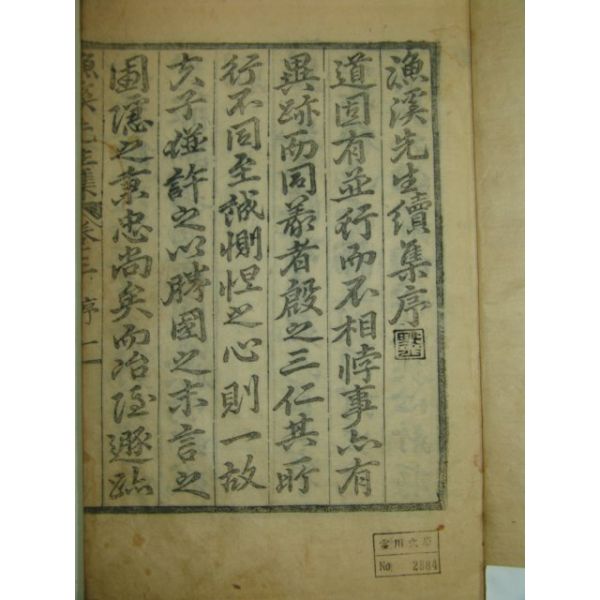 漁溪先生續集序
道固有並行而不相悖事亦有
異跡而同義者殷之三仁其所
行不同至誠惻怛之心則一故
夫子並許之以勝國之末言之
圃隱之秉忠尚矣而冶隱遯跡
漁溪先生集 卷三 序 一
No 2884